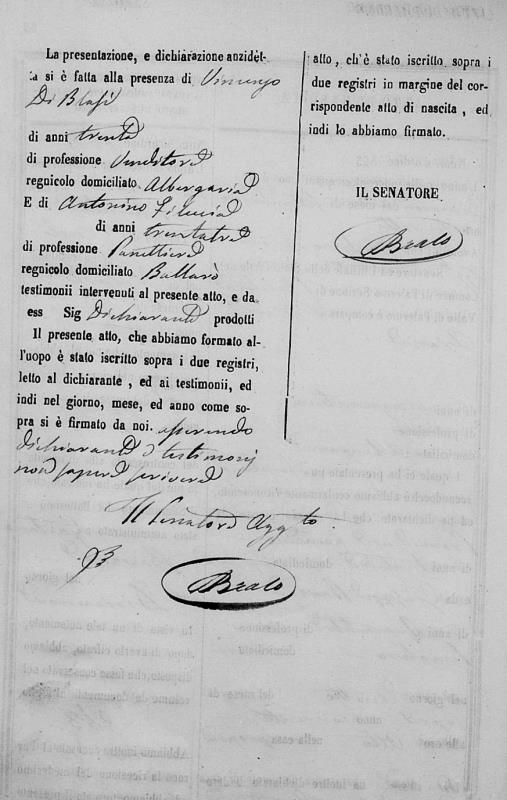 La presentazione, e dichiarazione anzidet-
ta si è fatta alla presenza di Vincenzo
Di Blasi
di anni trenta
di professione Venditore
regnicolo domiciliato Albergaria
E di Antonino Filucia
di anni trentatre
di professione Panettiere
regnicolo domiciliato Ballarò
testimonii intervenuti al presente atto, e da
ess Sig Dichiarante prodotti
Il presente atto, che abbiamo formato al-
l'uopo è stato iscritto sopra i due registri,
letto al dichiarante, ed ai testimonii, ed
indi nel giorno, mese, ed anno come so-
pra si è firmato da noi. asserendo
dichiarante e testimonij
non sapere scrivere
Il Senatore Agg.to
Beato
atto, ch'è stato iscritto sopra i
due registri in margine del cor-
rispondente atto di nascita, ed
indi lo abbiamo firmato.
IL SENATORE
Beato